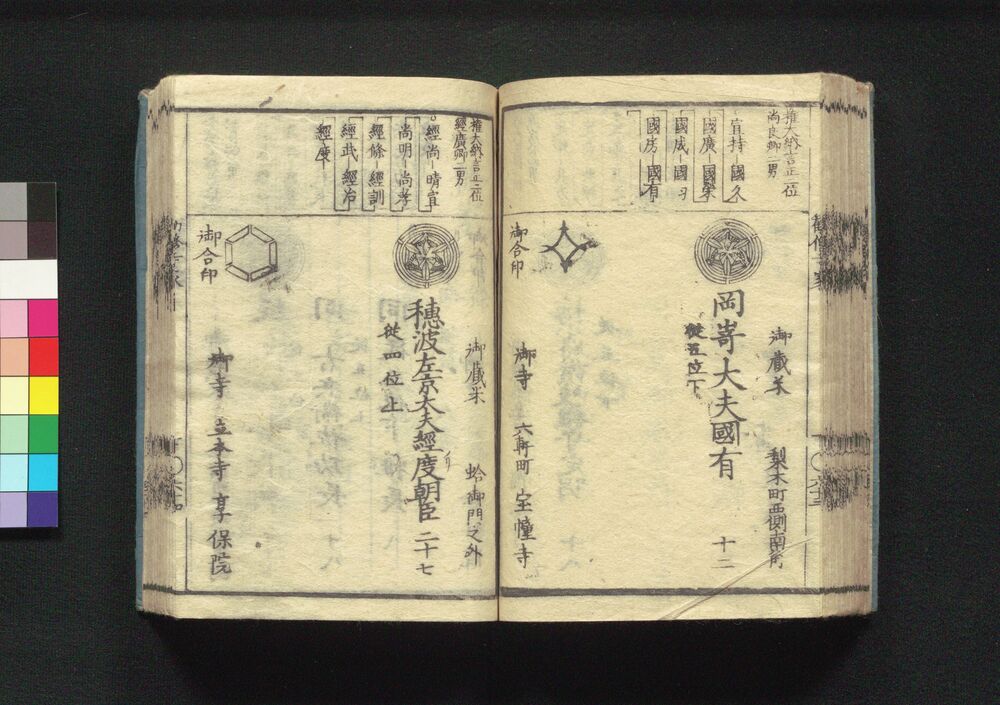 權大納言正二位
尚良卿二男
宣持-國久
國廣-國榮
國成-國
國房-國有
御藏米
梨木町西側南角
岡嵜大夫國有
十二
從五位下
御合印
御寺
六軒町
宝憧寺
權大納言正二位
經廣卿二男
經尚-晴宣
尚明-尚孝
經條-經訓
經武-經治
經度
御藏米
蛤御門之外
穗波左京大夫經度朝臣
二十七
從四位上
御合印
御寺
立本寺
享保院